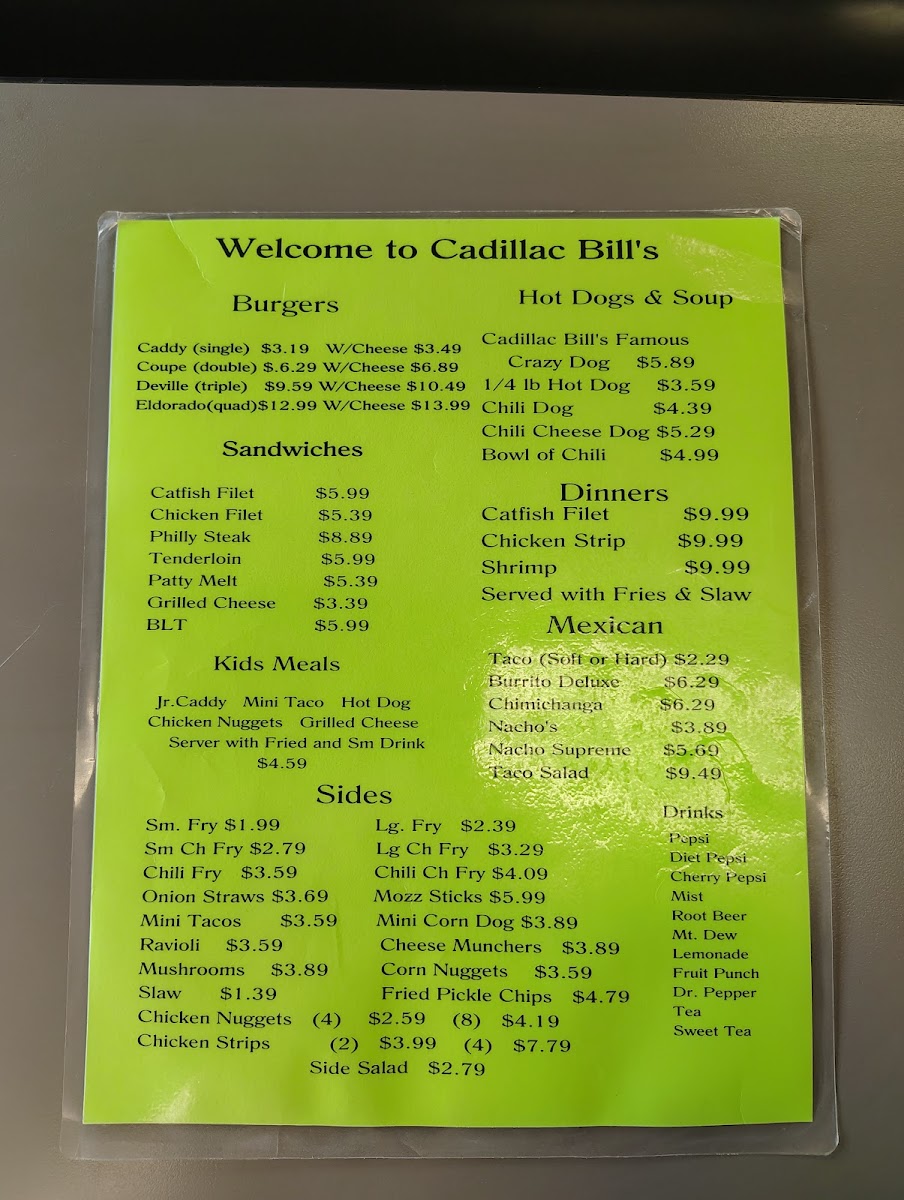 Welcome to Cadillac Bill's
Burgers
Caddy (single) $3.19 W/Cheese $3.49
Coupe (double) $.6.29 W/Cheese $6.89
Deville (triple) $9.59 W/Cheese $10.49
Eldorado(quad)$12.99 W/Cheese $13.99
Sandwiches
Catfish Filet $5.99
Chicken Filet $5.39
Philly Steak $8.89
Tenderloin $5.99
Patty Melt $5.39
Grilled Cheese $3.39
BLT $5.99
Kids Meals
Jr.Caddy Mini Taco Hot Dog
Chicken Nuggets Grilled Cheese
Server with Fried and Sm Drink
$4.59
Hot Dogs & Soup
Cadillac Bill's Famous
Crazy Dog $5.89
1/4 lb Hot Dog $3.59
Chili Dog $4.39
Chili Cheese Dog $5.29
Bowl of Chili $4.99
Dinners
Catfish Filet $9.99
Chicken Strip $9.99
Shrimp $9.99
Served with Fries & Slaw
Mexican
Taco (Soft or Hard) $2.29
Burrito Deluxe $6.29
Chimichanga $6.29
Nacho's $3.89
Nacho Supreme $5.69
Taco Salad $9.49
Sides
Sm. Fry $1.99 Lg. Fry $2.39
Sm Ch Fry $2.79 Lg Ch Fry $3.29
Chili Fry $3.59 Chili Ch Fry $4.09
Onion Straws $3.69 Mozz Sticks $5.99
Mini Tacos $3.59 Mini Corn Dog $3.89
Ravioli $3.59 Cheese Munchers $3.89
Mushrooms $3.89 Corn Nuggets $3.59
Slaw $1.39 Fried Pickle Chips $4.79
Chicken Nuggets (4) $2.59 (8) $4.19
Chicken Strips (2) $3.99 (4) $7.79
Side Salad $2.79
Drinks
Pepsi
Diet Pepsi
Cherry Pepsi
Mist
Root Beer
Mt. Dew
Lemonade
Fruit Punch
Dr. Pepper
Tea
Sweet Tea